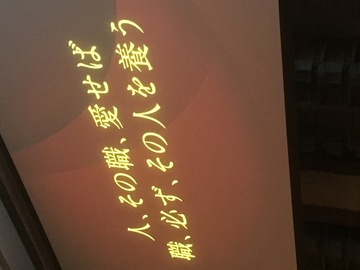 人、その職、愛せば
職、必ず、その人を養う